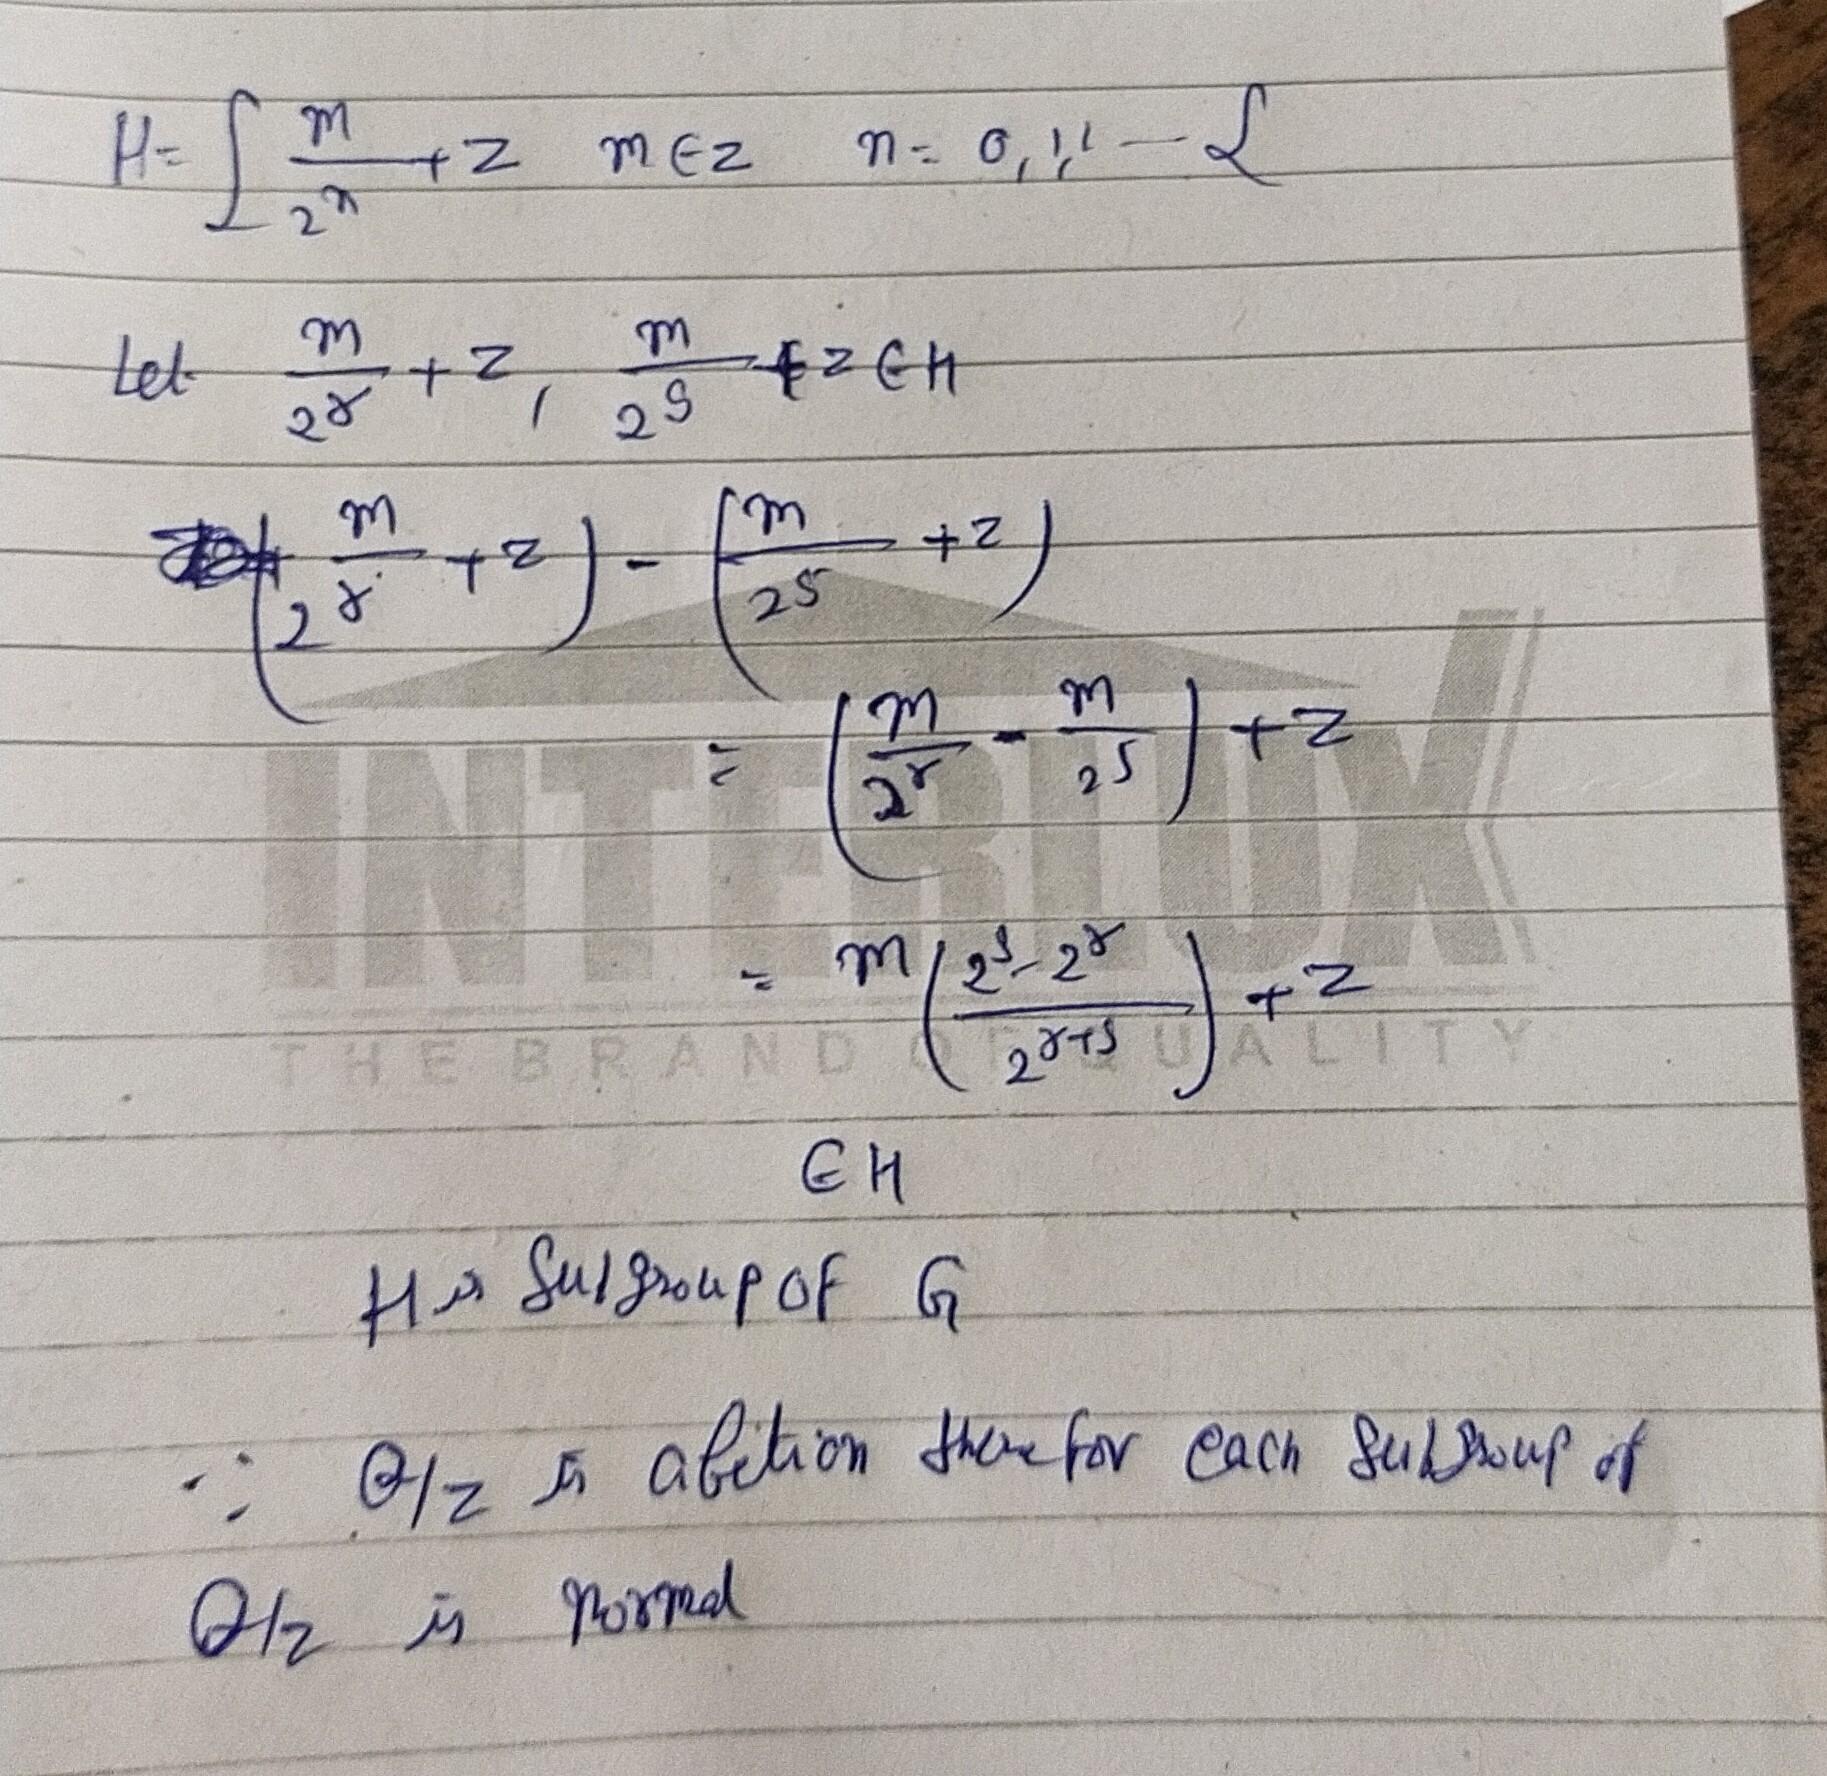 H = { m/2^n + Z m ∈ Z n = 0, 1, ' — }
Let m/2^r + Z, m/2^s + Z ∈ H
(m/2^r + Z) - (m/2^s + Z)
= (m/2^r - m/2^s) + Z
= m((2^s - 2^r)/2^(r+s)) + Z
∈ H
H is Subgroup of G
∵ Q/Z is abelion therefor each Subgroup of
Q/Z is normal
INTERLUX
THE BRAND OF QUALITY